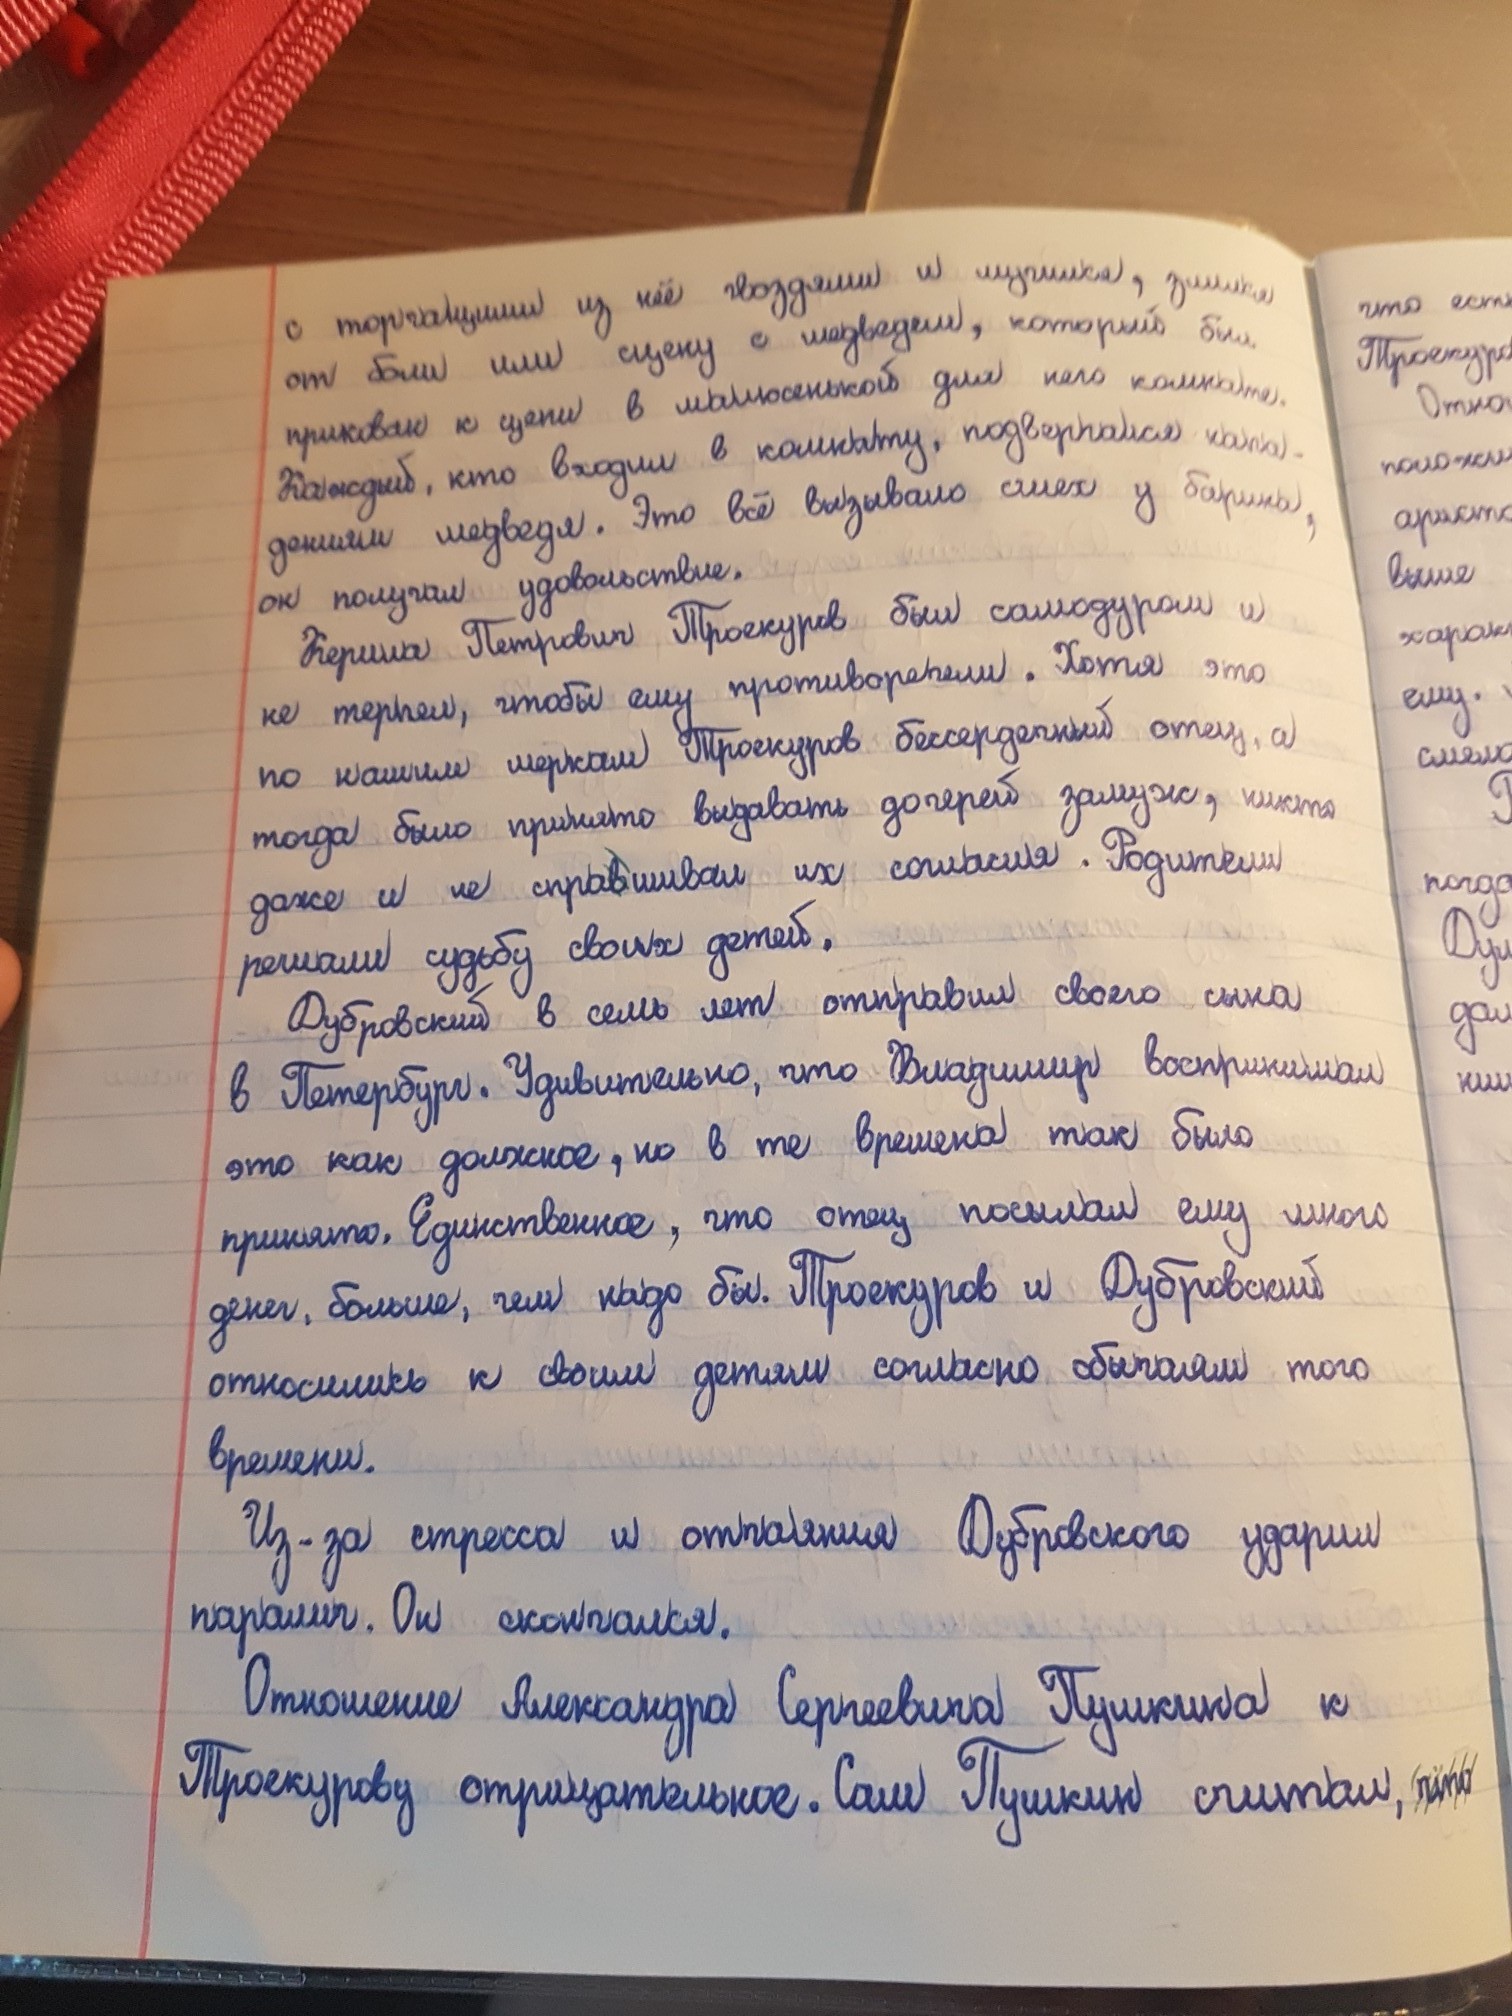 с торчащими из неё гвоздями и мучился,
от боли или сцену с медведем, который был
прикован к цепи в малюсенькой для него комнате.
Каждый, кто входил в комнату, подвергался напа-
дениям медведя. Это всё вызывало смех у барина,
он получал удовольствие.
Кирила Петрович Троекуров был самодуром и
не терпел, чтобы ему противоречили. Хотя это
по нашим меркам Троекуров бессердечный отец, а
тогда было принято выдавать дочерей замуж, никто
даже и не спрашивал их согласия. Родители
решали судьбу своих детей.
Дубровский в семь лет отправил своего сына
в Петербург. Удивительно, что Владимир воспринимал
это как должное, но в те времена так было
принято. Единственное, что отец посылал ему много
денег, больше, чем надо бы. Троекуров и Дубровский
относились к своим детям согласно обычаям того
времени.
Из-за стресса и отчаяния Дубровского ударил
паралич. Он скончался.
Отношение Александра Сергеевича Пушкина к
Троекурову отрицательное. Сам Пушкин считал,
что есть
Троекуро
Отно
полож
аристо
выше
харак
ему.
смело
когда
Дуб